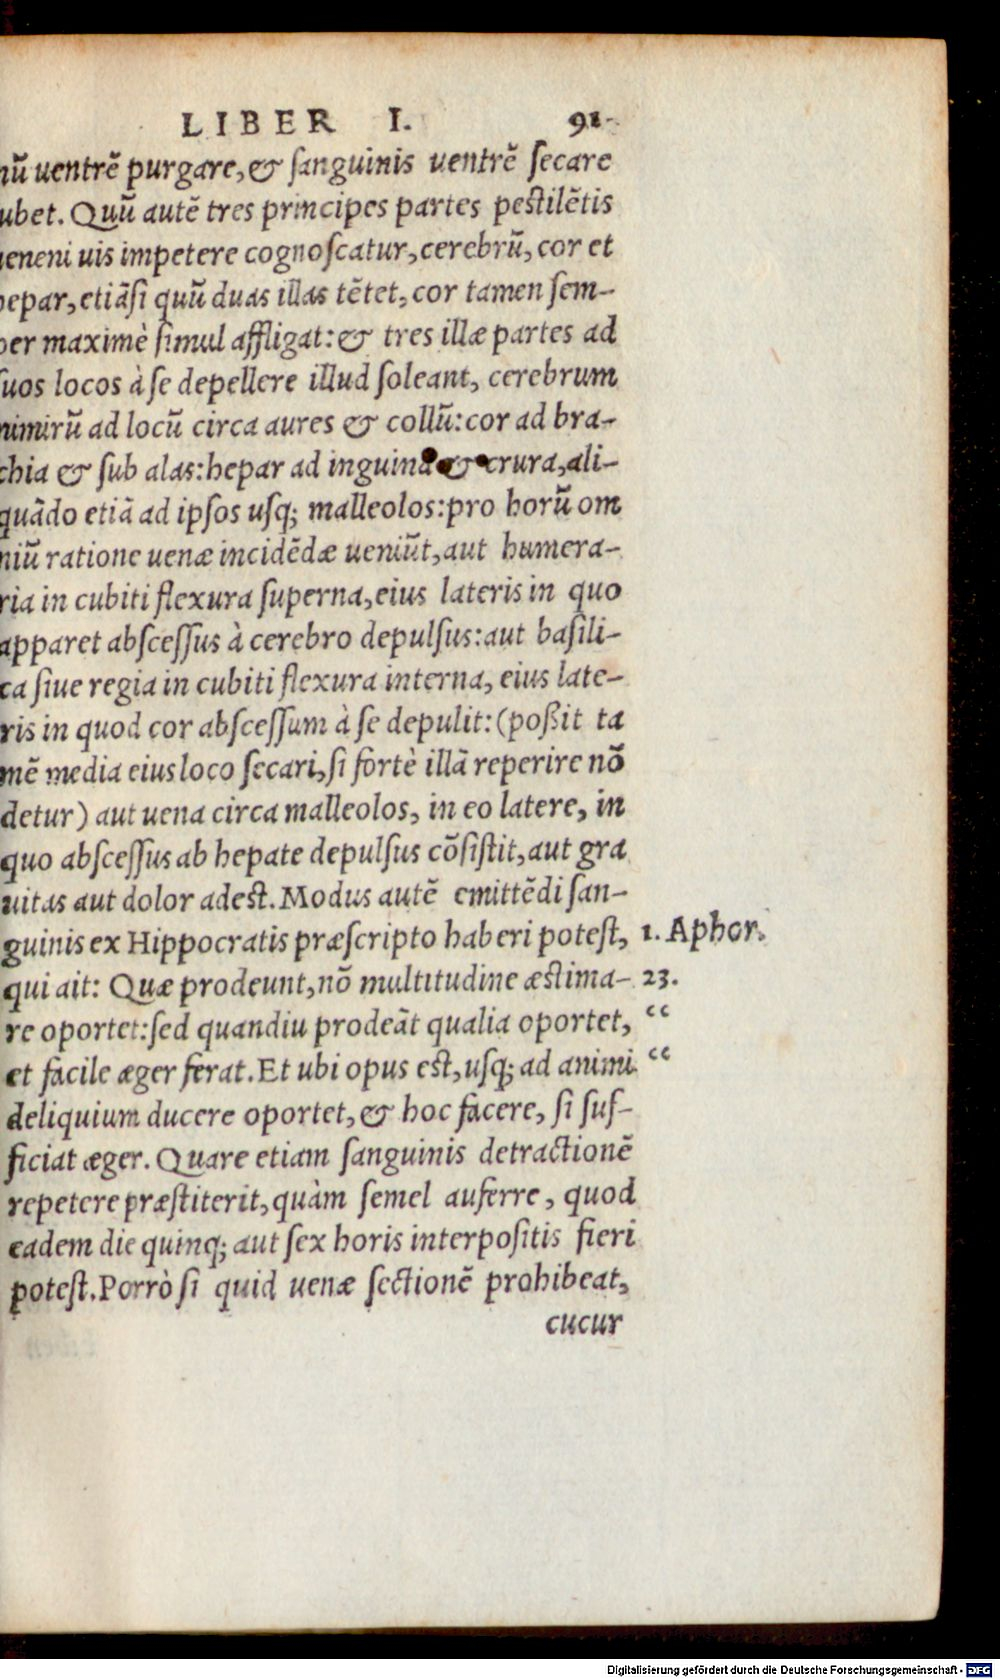 LIBER I. 91
nũ uentrẽ purgare, & ſanguinis uentrẽ ſecare
ubet. Quũ autẽ tres principes partes peſtilẽtis
ueneni uis impetere cognoſcatur, cerebrũ, cor et
hepar, etiãſi quũ duas illas tẽtet, cor tamen ſem-
per maximè ſimul affligat: & tres illæ partes ad
ſuos locos à ſe depellere illud ſoleant, cerebrum
nimirũ ad locũ circa aures & collũ: cor ad bra-
chia & ſub alas: hepar ad inguina & crura, ali-
quãdo etiã ad ipſos uſq; malleolos: pro horũ om
niũ ratione uenæ incidẽdæ ueniũt, aut humera-
ria in cubiti flexura ſuperna, eius lateris in quo
apparet abſceſſus à cerebro depulſus: aut baſili-
ca ſiue regia in cubiti flexura interna, eius late-
ris in quod cor abſceſſum à ſe depulit: (poßit ta
mẽ media eius loco ſecari, ſi fortè illã reperire nõ
detur) aut uena circa malleolos, in eo latere, in
quo abſceſſus ab hepate depulſus cõſiſtit, aut gra
uitas aut dolor adest. Modus autẽ emittẽdi ſan-
guinis ex Hippocratis præſcripto haberi poteſt, 1. Aphor.
qui ait: Quæ prodeunt, nõ multitudine æstima- 23.
re oportet: ſed quandiu prodeãt qualia oportet, “
et facile æger ferat. Et ubi opus est, uſq; ad animi “
deliquium ducere oportet, & hoc facere, ſi ſuf-
ficiat æger. Quare etiam ſanguinis detractionẽ
repetere præſtiterit, quàm ſemel auferre, quod
eadem die quinq; aut ſex horis interpoſitis fieri
poteſt. Porrò ſi quid uenæ ſectionẽ prohibeat,
cucur
Digitalisierung gefördert durch die Deutsche Forschungsgemeinschaft - DFG